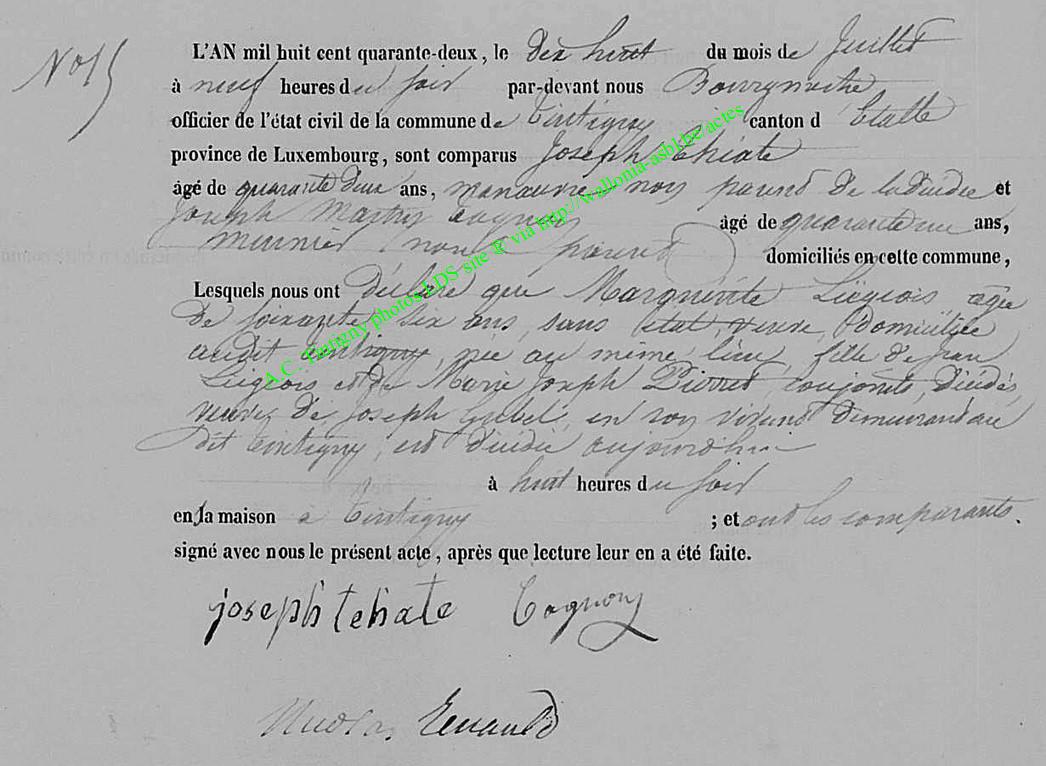 No 15
L'AN mil huit cent quarante-deux, le dix huit du mois de Juillet
à neuf heures du soir par-devant nous
officier de l'état civil de la commune de Tintigny canton d' Etalle
province de Luxembourg, sont comparus Joseph thiate
âgé de quarante deux ans, manœuvre non parent de la décédée et
Joseph Martin Cognon âgé de quarante un ans,
meunier non parent domiciliés en cette commune,
Lesquels nous ont déclaré que Marguerite Liégeois, agée
de soixante six ans, sans état, veuve, domiciliée
audit tintigny, née au même lieu, fille de jean
Liégeois et de Marie Joseph Pierret, conjoints, décédés,
veuve de Joseph en son vivant demeurant au
dit tintigny, est décédée aujourd'hui
à huit heures du soir
en la maison à tintigny ; et ont les comparants
signé avec nous le présent acte, après que lecture leur en a été faite.
joseph tehate Cognon
Renauld
A.C. Tintigny photos LDS site & via http://wallonia-asbl.be/actes